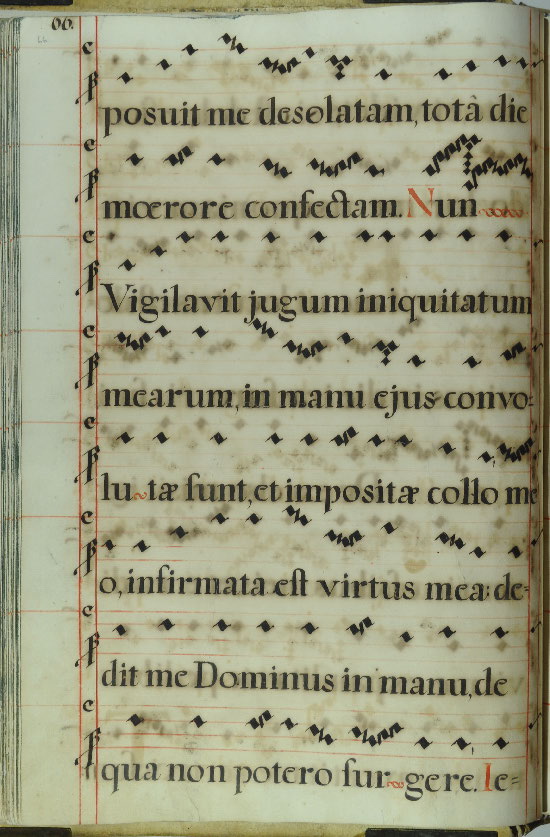 66.
posuit me desolatam, totâ die
mœrore confectam. Nun
Vigilavit jugum iniquitatum
mearum, in manu ejus convo-
lu~tæ sunt, et impositæ collo me
o, infirmata est virtus mea: de-
dit me Dominus in manu, de
qua non potero sur~gere. Ie-